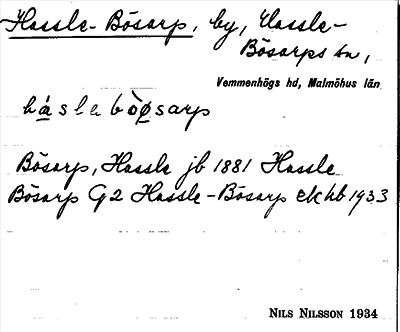 Hassle-Bösarp, by, Hassle-
Bösarps sn,
Vemmenhögs hd, Malmöhus län
Bösarp, Hassle jb 1881 Hassle
Bösarp G2 Hassle-Bösarp ekhb 1933
NILS NILSSON 1934